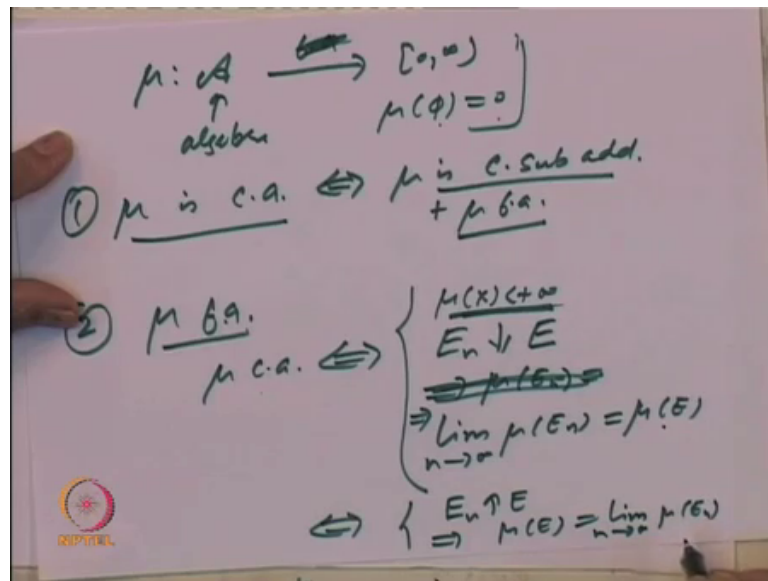 μ: A ⟶ [0, ∞)
↑ μ(φ) = 0
algebra
① μ is c.a. ⇔ μ is c. sub add.
+ μ f.a.
② μ f.a.
μ(X) < +∞
μ c.a. ⇔ { Eₙ ↓ E
⇒ μ(Eₙ) =
⇒ lim n→∞ μ(Eₙ) = μ(E)
⇔ { Eₙ ↑ E
⇒ μ(E) = lim n→∞ μ(Eₙ)
NPTEL